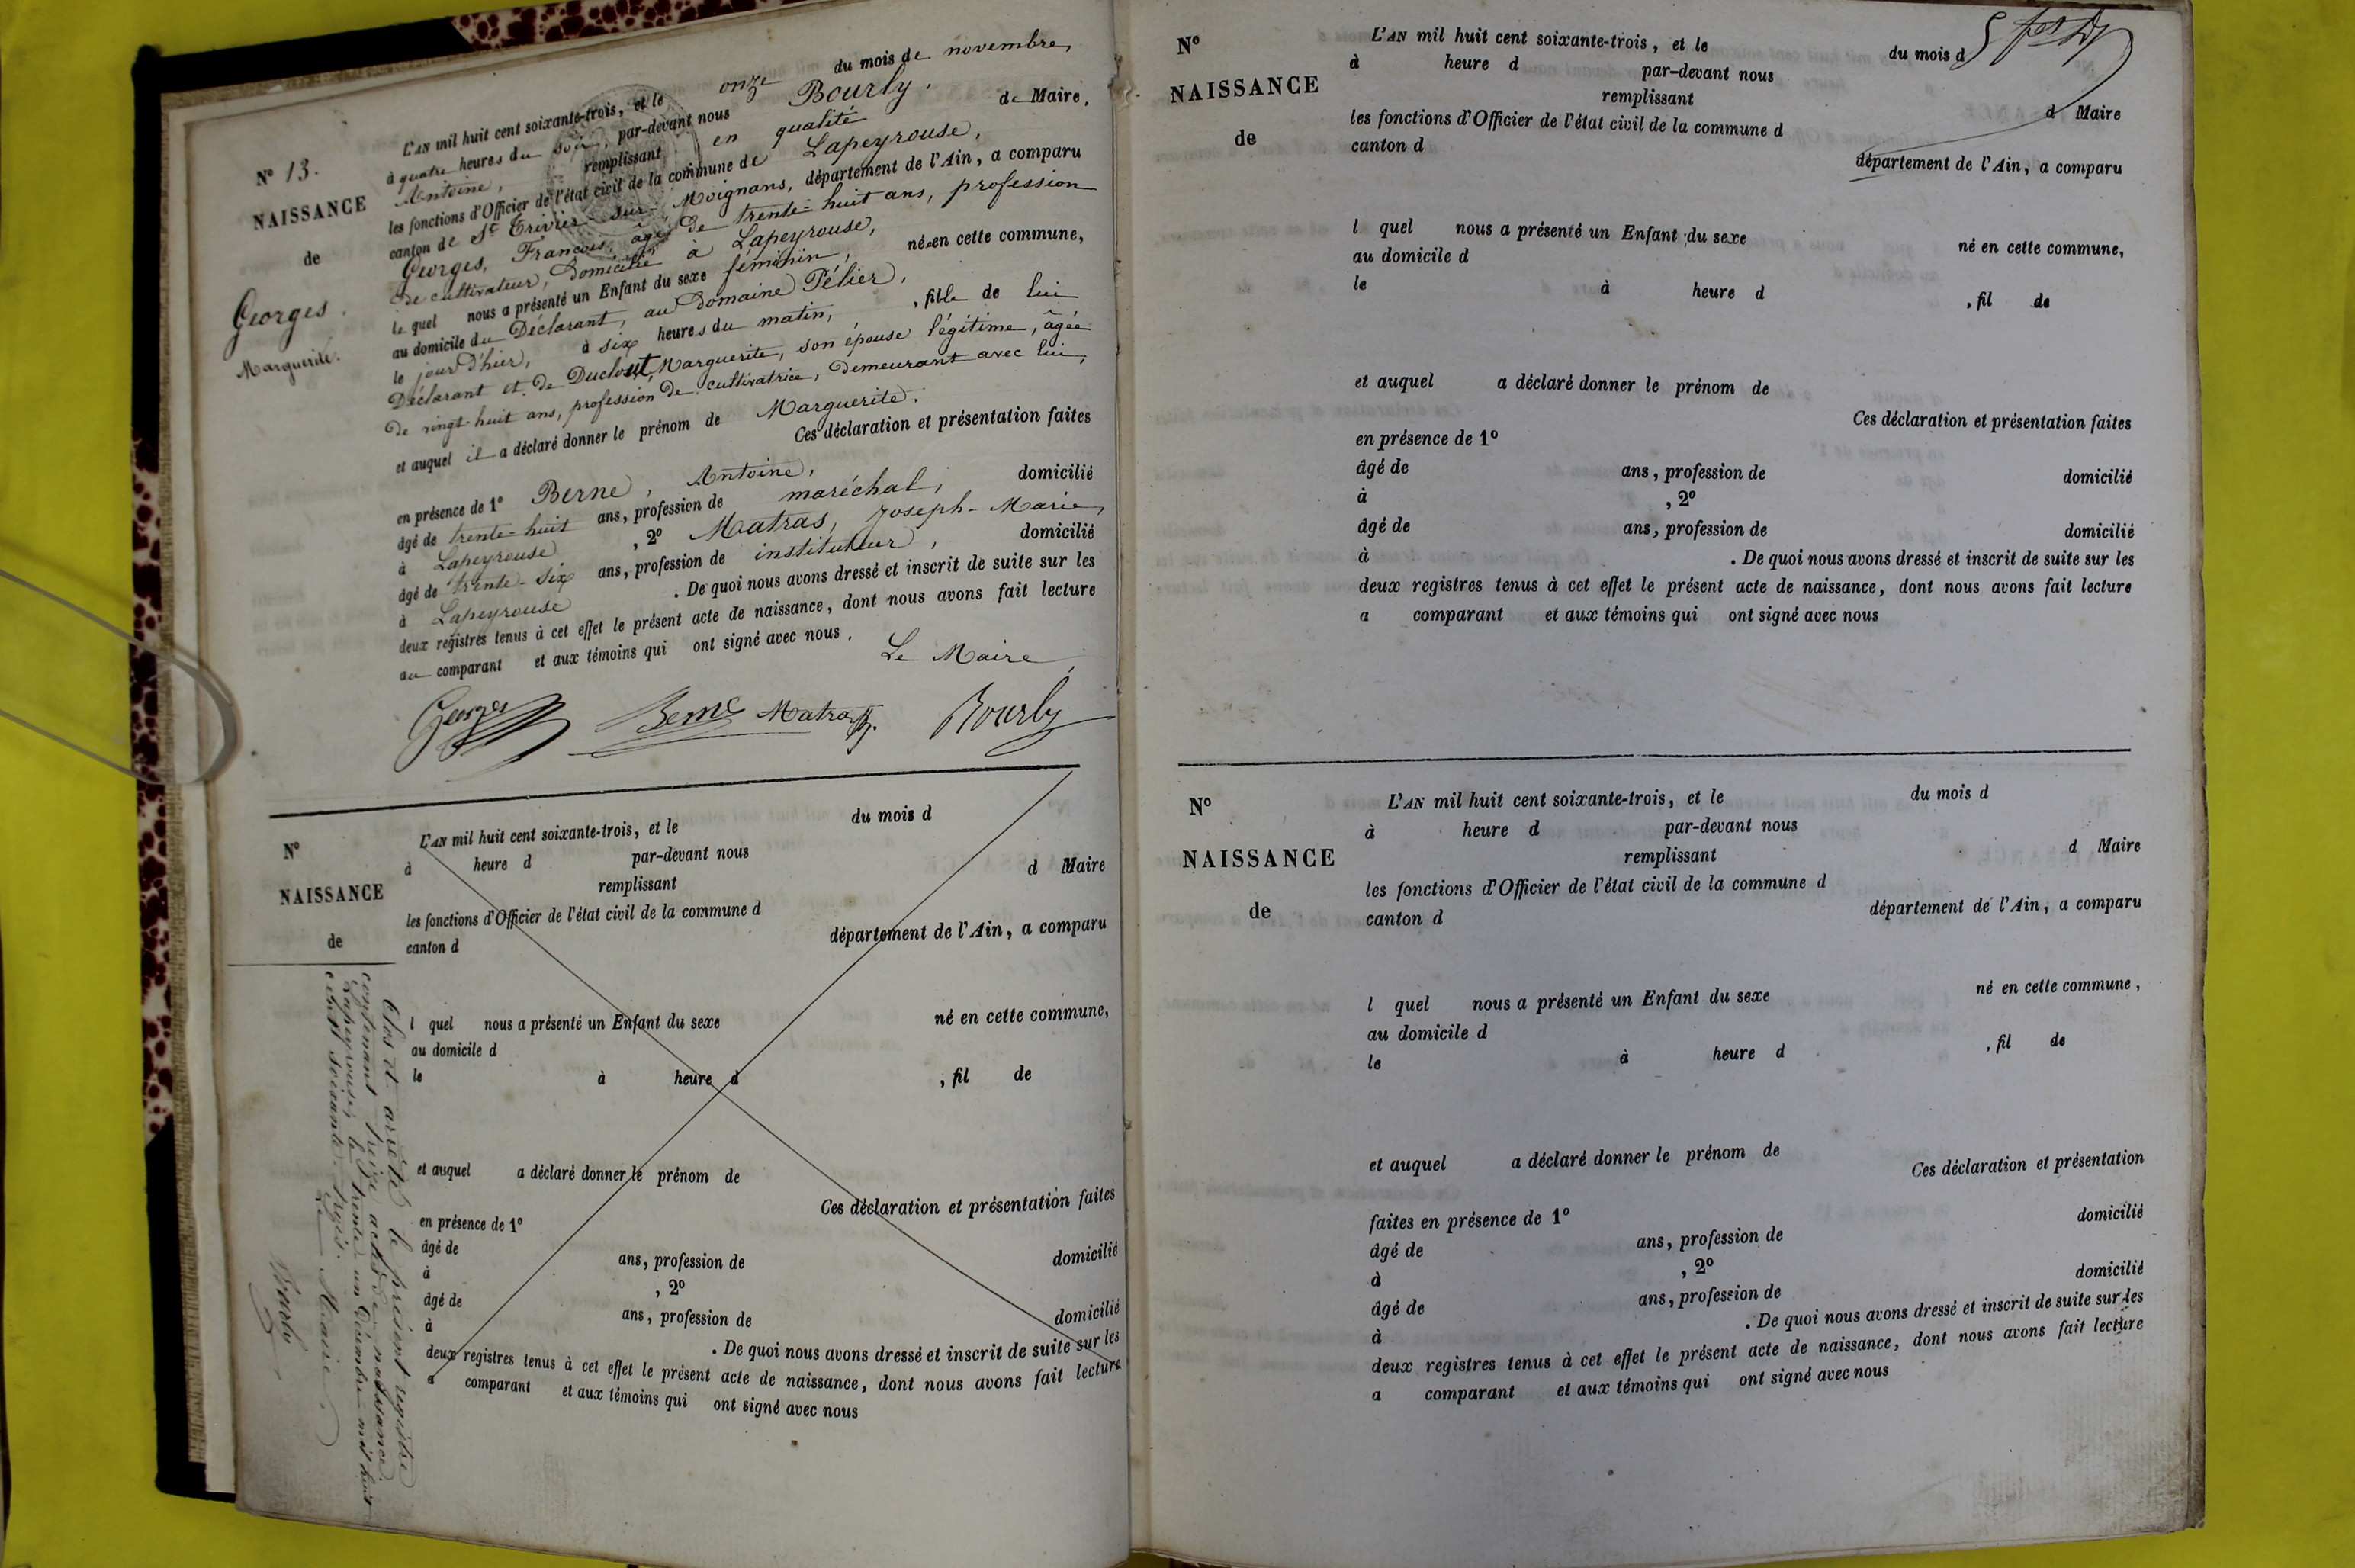 N° 13.
NAISSANCE
de
Georges.
Marguerite.
L'AN mil huit cent soixante-trois, et le onze du mois de novembre,
à quatre heures du soir, par-devant nous Bourly,
Antoine, remplissant en qualité de Maire,
les fonctions d'Officier de l'état civil de la commune de Lapeyrouse,
canton de St Trivier-sur-Moignans, département de l'Ain, a comparu
Georges, François, âgé de trente-huit ans, profession
de cultivateur, domicilié à Lapeyrouse,
le quel nous a présenté un Enfant du sexe féminin, née en cette commune,
au domicile du Déclarant, au domaine Pélier,
le jour d'hier, à six heures du matin, , fille de lui
Déclarant et de Duclout, Marguerite, son épouse légitime, âgée
de vingt-huit ans, profession de cultivatrice, demeurant avec lui,
et auquel il a déclaré donner le prénom de Marguerite.
Ces déclaration et présentation faites
en présence de 1° Berne, Antoine,
âgé de trente-huit ans, profession de maréchal, domicilié
à Lapeyrouse , 2° Matras, Joseph-Marie,
âgé de trente-six ans, profession de instituteur, domicilié
à Lapeyrouse . De quoi nous avons dressé et inscrit de suite sur les
deux registres tenus à cet effet le présent acte de naissance, dont nous avons fait lecture
au comparant et aux témoins qui ont signé avec nous.
Le Maire,
Georges Berne Matras Bourly
N°
NAISSANCE
de
L'AN mil huit cent soixante-trois, et le du mois d
à heure d par-devant nous
remplissant d Maire
les fonctions d'Officier de l'état civil de la commune d
canton d département de l'Ain, a comparu
l quel nous a présenté un Enfant du sexe né en cette commune,
au domicile d
le à heure d , fil de
et auquel a déclaré donner le prénom de
Ces déclaration et présentation faites
en présence de 1°
âgé de ans, profession de domicilié
à , 2°
âgé de ans, profession de domicilié
à . De quoi nous avons dressé et inscrit de suite sur les
deux registres tenus à cet effet le présent acte de naissance, dont nous avons fait lecture
a comparant et aux témoins qui ont signé avec nous
Clos et arrêté le présent registre
contenant treize actes de naissance.
Lapeyrouse, le trente-un Décembre mil huit
cent soixante-trois.
Le Maire,
Bourly
N°
NAISSANCE
de
L'AN mil huit cent soixante-trois, et le du mois d
à heure d par-devant nous
remplissant d Maire
les fonctions d'Officier de l'état civil de la commune d
canton d département de l'Ain, a comparu
l quel nous a présenté un Enfant du sexe né en cette commune,
au domicile d
le à heure d , fil de
et auquel a déclaré donner le prénom de
Ces déclaration et présentation faites
en présence de 1°
âgé de ans, profession de domicilié
à , 2°
âgé de ans, profession de domicilié
à . De quoi nous avons dressé et inscrit de suite sur les
deux registres tenus à cet effet le présent acte de naissance, dont nous avons fait lecture
a comparant et aux témoins qui ont signé avec nous
N°
NAISSANCE
de
L'AN mil huit cent soixante-trois, et le du mois d
à heure d par-devant nous
remplissant d Maire
les fonctions d'Officier de l'état civil de la commune d
canton d département de l'Ain, a comparu
l quel nous a présenté un Enfant du sexe né en cette commune,
au domicile d
le à heure d , fil de
et auquel a déclaré donner le prénom de
Ces déclaration et présentation
faites en présence de 1° domicilié
âgé de ans, profession de
à , 2° domicilié
âgé de ans, profession de
à . De quoi nous avons dressé et inscrit de suite sur les
deux registres tenus à cet effet le présent acte de naissance, dont nous avons fait lecture
a comparant et aux témoins qui ont signé avec nous